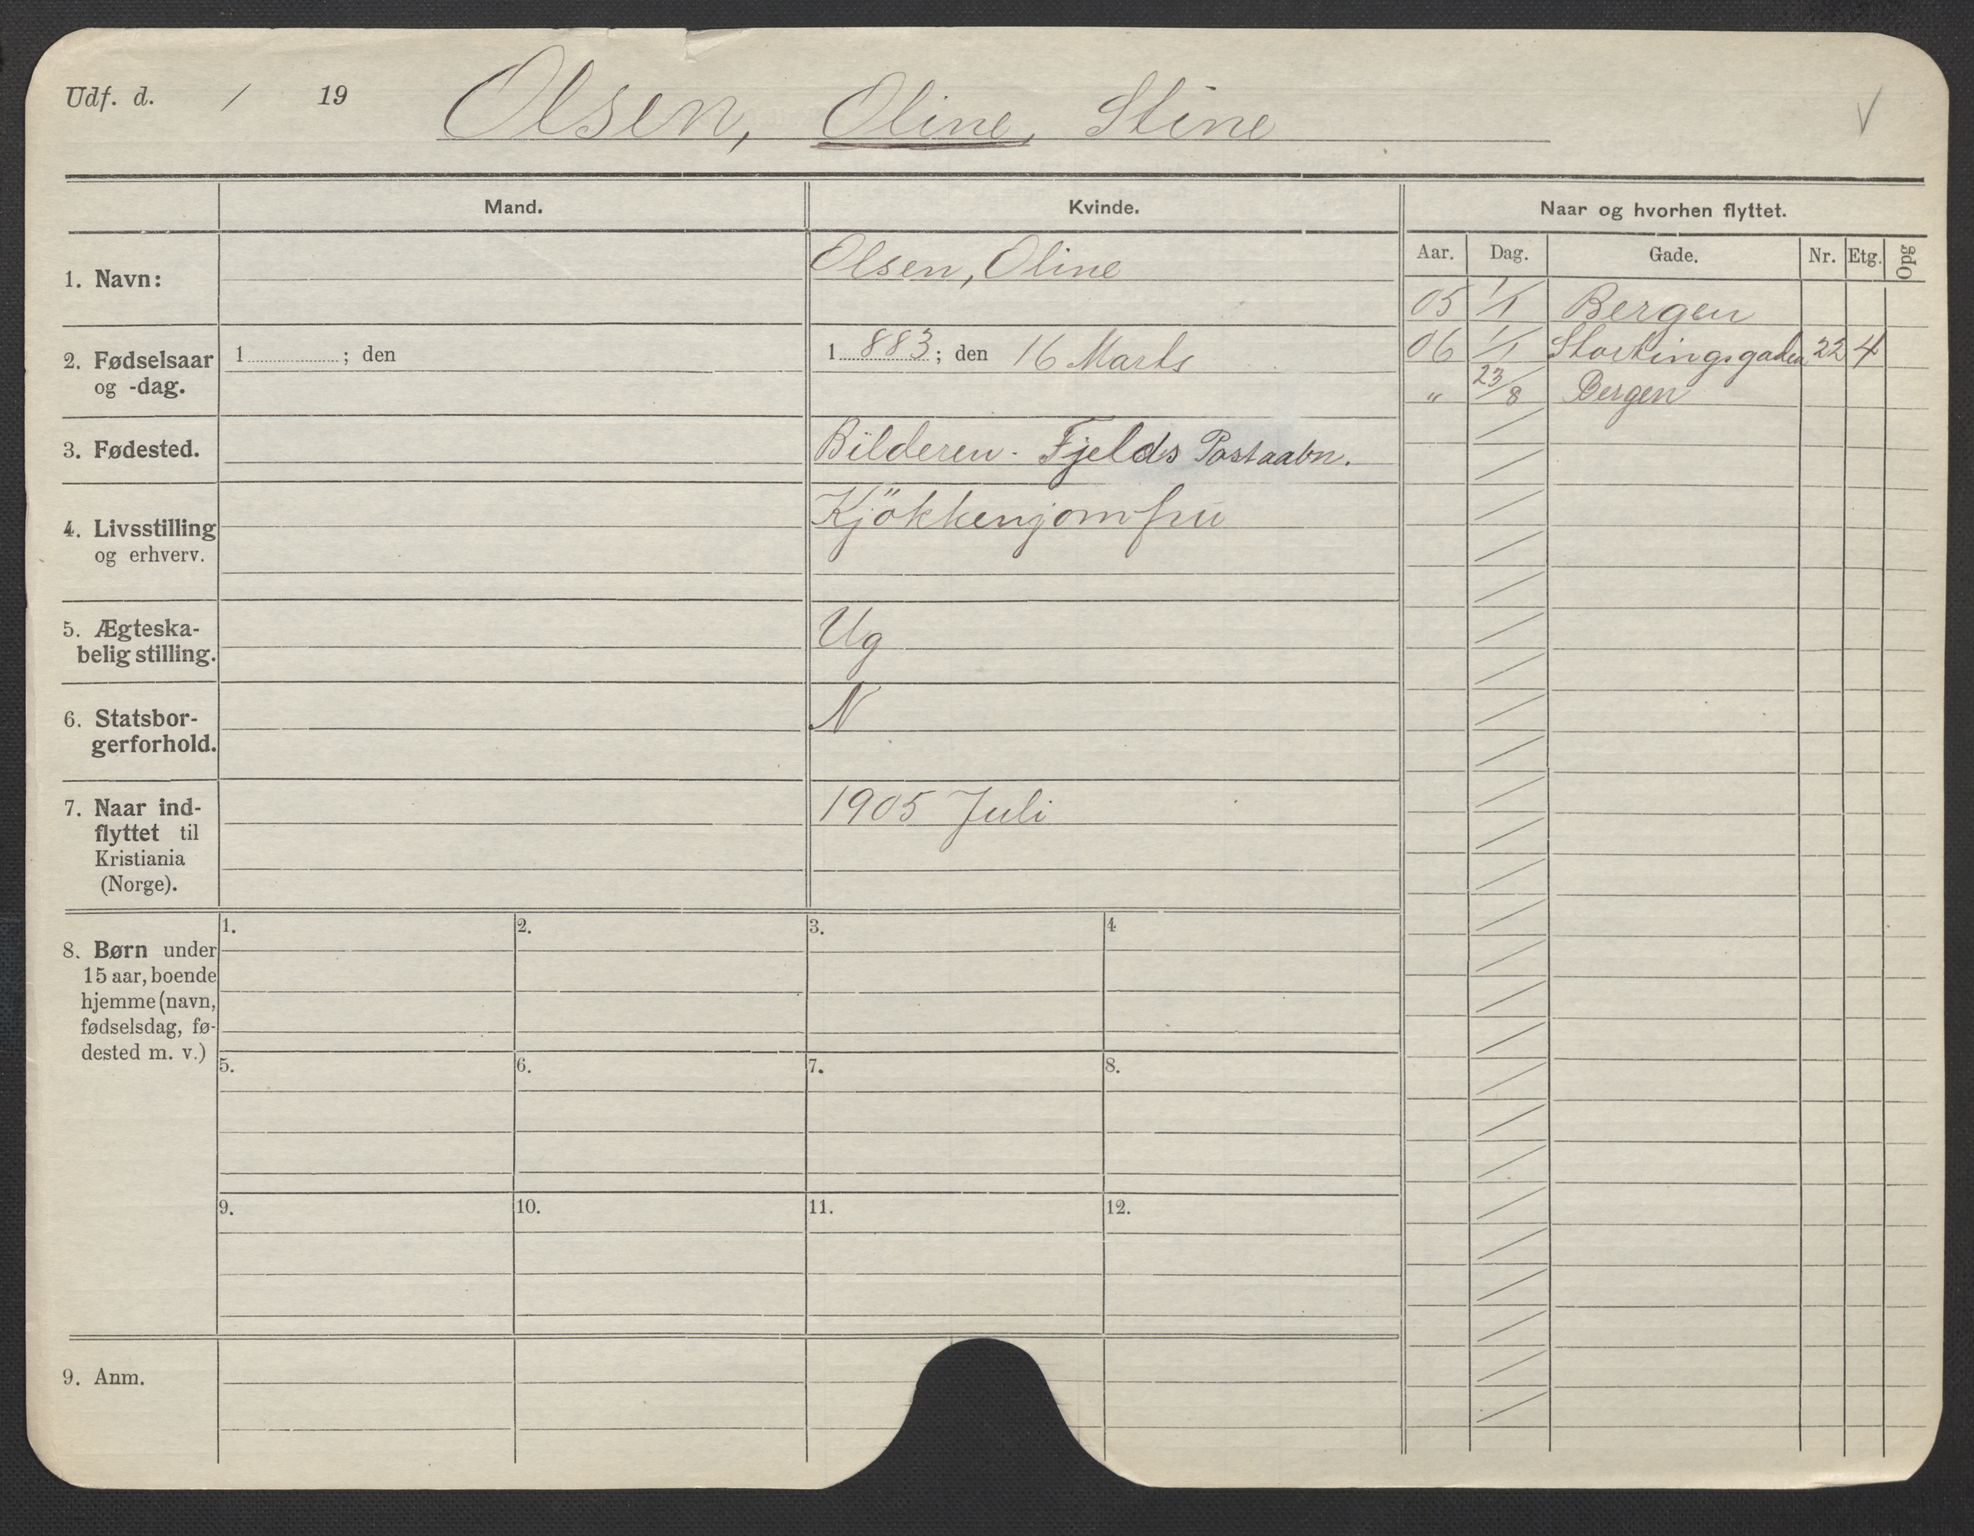 Udf. d. / 19
Olsen, Oline, Stine
V
Mand.
Kvinde.
Naar og hvorhen flyttet.
Aar. Dag. Gade. Nr. Etg. Opg
1. Navn:
Olsen, Oline
2. Fødselsaar
og -dag.
1 ; den
1 883 ; den 16 Marts
3. Fødested.
Bilderen - Fjelds Postaabn.
4. Livsstilling
og erhverv.
Kjökkenjomfru
5. Ægteska-
belig stilling.
Ug
6. Statsbor-
gerforhold.
N
7. Naar ind-
flyttet til
Kristiania
(Norge).
1905 Juli
8. Børn under
15 aar, boende
hjemme (navn,
fødselsdag, fø-
dested m. v.)
1. 2. 3. 4
5. 6. 7. 8.
9. 10. 11. 12.
9. Anm.
05 1/1 Bergen
06 1/1 Stortingsgaden 22 4
" 23/8 Bergen